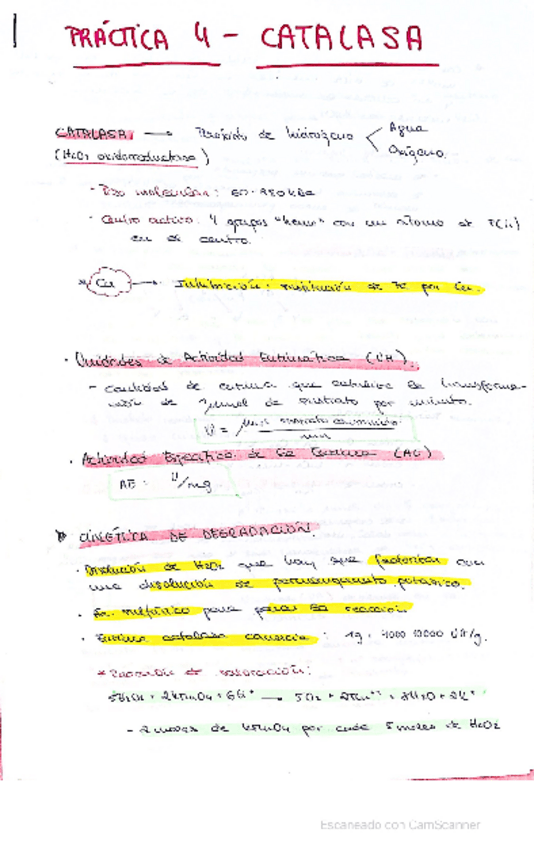 PRÁCTICA 4 - CATALASA
CATALASA → Peróxido de hidrógeno < Agua
Oxígeno.
(H2O2 oxidorreductasa)
· Peso molecular:
· Centro activo: 4 grupos "hemo" con un átomo de Fe(III)
en el centro.
* Cu → Inhibición: sustitución de Fe por Cu.
· Unidades de Actividad Enzimática (UA).
- cantidad de enzima que cataliza la transforma-
ción de 1 μmol de sustrato por minuto.
U = μmol sustrato consumido
min
· Actividad Específica de la Enzima
AE = U/mg
CINÉTICA DE DEGRADACIÓN.
· Disolución de H2O2 que hay que factorizar con
una disolución de permanganato potásico.
· Ác. sulfúrico para parar la reacción.
· Enzima catalasa comercial: 1g.
* Reacción de valoración:
5H2O2 + 2KMnO4 + 6H+ → 5O2 + 2Mn2+ + 8H2O + 2K+
- 2 moles de KMnO4 por cada 5 moles de H2O2
Escaneado con CamScanner